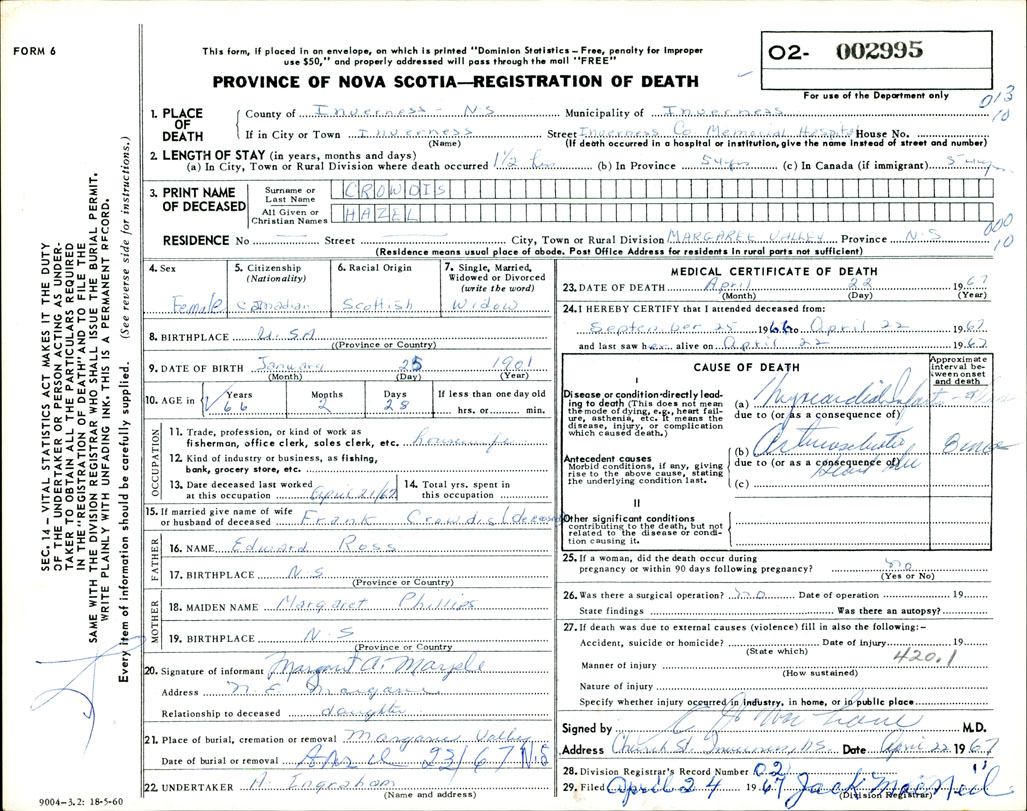 FORM 6
This form, if placed in an envelope, on which is printed "Dominion Statistics – Free, penalty for improper
use $50," and properly addressed will pass through the mail "FREE"
PROVINCE OF NOVA SCOTIA—REGISTRATION OF DEATH
02- 002995
For use of the Department only
013
10
1. PLACE OF DEATH
County of Inverness - N.S Municipality of Inverness
If in City or Town Inverness Street Inverness Co Memorial Hospital House No.
(Name) (If death occurred in a hospital or institution, give the name instead of street and number)
2. LENGTH OF STAY (in years, months and days)
(a) In City, Town or Rural Division where death occurred 1 1/2 (b) In Province 54 yrs (c) In Canada (if immigrant)
3. PRINT NAME OF DECEASED
Surname or Last Name CROWDIS
All Given or Christian Names HAZEL
000
10
RESIDENCE No Street City, Town or Rural Division MARGAREE VALLEY Province N.S
(Residence means usual place of abode. Post Office Address for residents in rural parts not sufficient)
4. Sex Female
5. Citizenship (Nationality) Canadian
6. Racial Origin Scottish
7. Single, Married, Widowed or Divorced (write the word) Widow
8. BIRTHPLACE U.SA
(Province or Country)
9. DATE OF BIRTH January 25 1901
(Month) (Day) (Year)
10. AGE in Years 66 Months 2 Days 28 If less than one day old hrs. or min.
OCCUPATION
11. Trade, profession, or kind of work as
fisherman, office clerk, sales clerk, etc. housewife
12. Kind of industry or business, as fishing,
bank, grocery store, etc.
13. Date deceased last worked at this occupation April 21/67
14. Total yrs. spent in this occupation
15. If married give name of wife or husband of deceased Frank Crowdis (deceased
FATHER
16. NAME Edward Ross
17. BIRTHPLACE N.S
(Province or Country)
MOTHER
18. MAIDEN NAME Margaret Phillips
19. BIRTHPLACE N.S
(Province or Country)
20. Signature of informant Margaret A. Marple
Address N. E Margaree
Relationship to deceased daughter
21. Place of burial, cremation or removal Margaree Valley
Date of burial or removal April 23/67 N.S
22. UNDERTAKER A. Ingraham
(Name and address)
9004-3.2: 18-5-60
MEDICAL CERTIFICATE OF DEATH
23. DATE OF DEATH April 22 1967
(Month) (Day) (Year)
24. I HEREBY CERTIFY that I attended deceased from:
September 25 1966 to April 22 1967
and last saw her alive on April 22 1967
CAUSE OF DEATH
Approximate interval between onset and death
I
Disease or condition directly leading to death (This does not mean the mode of dying, e.g., heart failure, asthenia, etc. It means the disease, injury, or complication which caused death.)
(a) Myocardial
due to (or as a consequence of)
Antecedent causes
Morbid conditions, if any, giving rise to the above cause, stating the underlying condition last.
(b)
due to (or as a consequence of)
(c)
II
Other significant conditions
contributing to the death, but not related to the disease or condition causing it.
25. If a woman, did the death occur during
pregnancy or within 90 days following pregnancy? no
(Yes or No)
26. Was there a surgical operation? no Date of operation 19
State findings Was there an autopsy?
27. If death was due to external causes (violence) fill in also the following:–
Accident, suicide or homicide? Date of injury 19
(State which)
420.1
Manner of injury
(How sustained)
Nature of injury
Specify whether injury occurred in industry, in home, or in public place
Signed by M.D.
Address Church St. Inverness, N.S Date April 22 1967
28. Division Registrar's Record Number 02
29. Filed April 24 1967 Jack MacNeil
(Division Registrar)
SEC. 14 – VITAL STATISTICS ACT MAKES IT THE DUTY
OF THE UNDERTAKER OR PERSON ACTING AS UNDER-
TAKER TO OBTAIN ALL THE PARTICULARS REQUIRED
IN THE "REGISTRATION OF DEATH" AND TO FILE THE
SAME WITH THE DIVISION REGISTRAR WHO SHALL ISSUE THE BURIAL PERMIT.
WRITE PLAINLY WITH UNFADING INK. THIS IS A PERMANENT RECORD.
Every item of information should be carefully supplied. (See reverse side for instructions.)